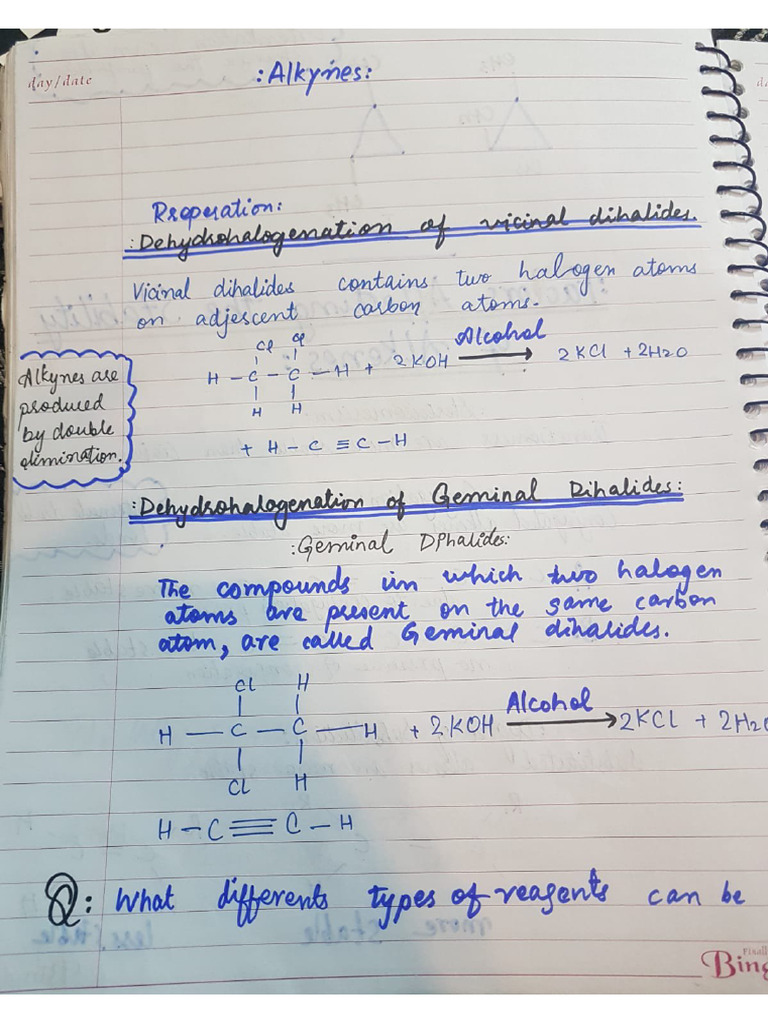 day/date
:Alkynes:
Rreperation:
:Dehydrohalogenation of vicinal dihalides.
Vicinal dihalides contains two halogen atoms
on adjescent carbon atoms.
Cl Cl
H - C - C - H + 2KOH Alcohol → 2KCl + 2H2O
H H
+ H - C ≡ C - H
Alkynes are
produced
by double
elimination.
:Dehydrohalogenation of Geminal Dihalides:
:Geminal DPhalides:
The compounds in which two halogen
atoms are present on the same carbon
atom, are called Geminal dihalides.
Cl H
H - C - C - H + 2KOH Alcohol → 2KCl + 2H2O
Cl H
H - C ≡ C - H
Q: What differents types of reagents can be
Bing